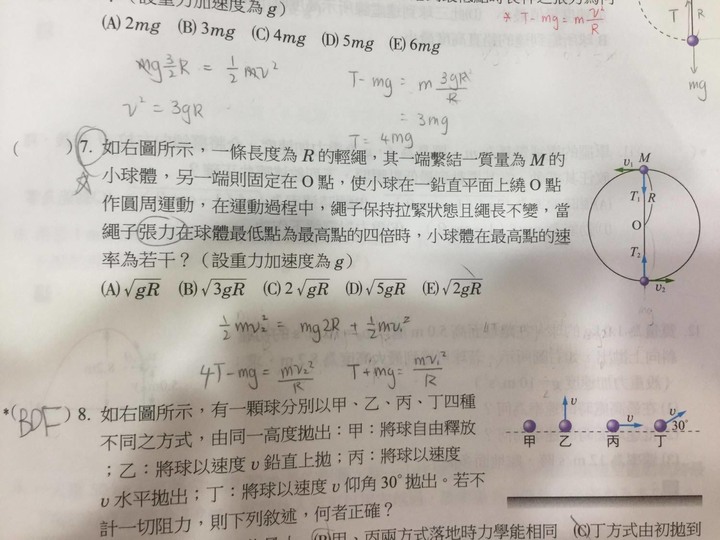 (設重力加速度為 g)
* T - mg = m v²/R
(A) 2mg (B) 3mg (C) 4mg (D) 5mg (E) 6mg
T R
mg
mg 3/2 R = 1/2 mv²
T - mg = m 3gR/R
v² = 3gR
= 3mg
T = 4mg
( ) 7. 如右圖所示,一條長度為 R 的輕繩,其一端繫結一質量為 M 的
小球體,另一端則固定在 O 點,使小球在一鉛直平面上繞 O 點
作圓周運動,在運動過程中,繩子保持拉緊狀態且繩長不變,當
繩子張力在球體最低點為最高點的四倍時,小球體在最高點的速
率為若干?(設重力加速度為 g)
υ₁ M
T₁ R
O
T₂
υ₂
(A) √gR (B) √3gR (C) 2√gR (D) √5gR (E) √2gR
1/2 mv₂² = mg2R + 1/2 mv₁²
4T - mg = mv₂²/R T + mg = mv₁²/R
*(BDF) 8. 如右圖所示,有一顆球分別以甲、乙、丙、丁四種
不同之方式,由同一高度拋出:甲:將球自由釋放
;乙:將球以速度 υ 鉛直上拋;丙:將球以速度
υ 水平拋出;丁:將球以速度 υ 仰角 30° 拋出。若不
計一切阻力,則下列敘述,何者正確?
υ υ υ 30°
甲 乙 丙 丁
(B)甲、丙兩方式落地時力學能相同 (C)丁方式由初拋到